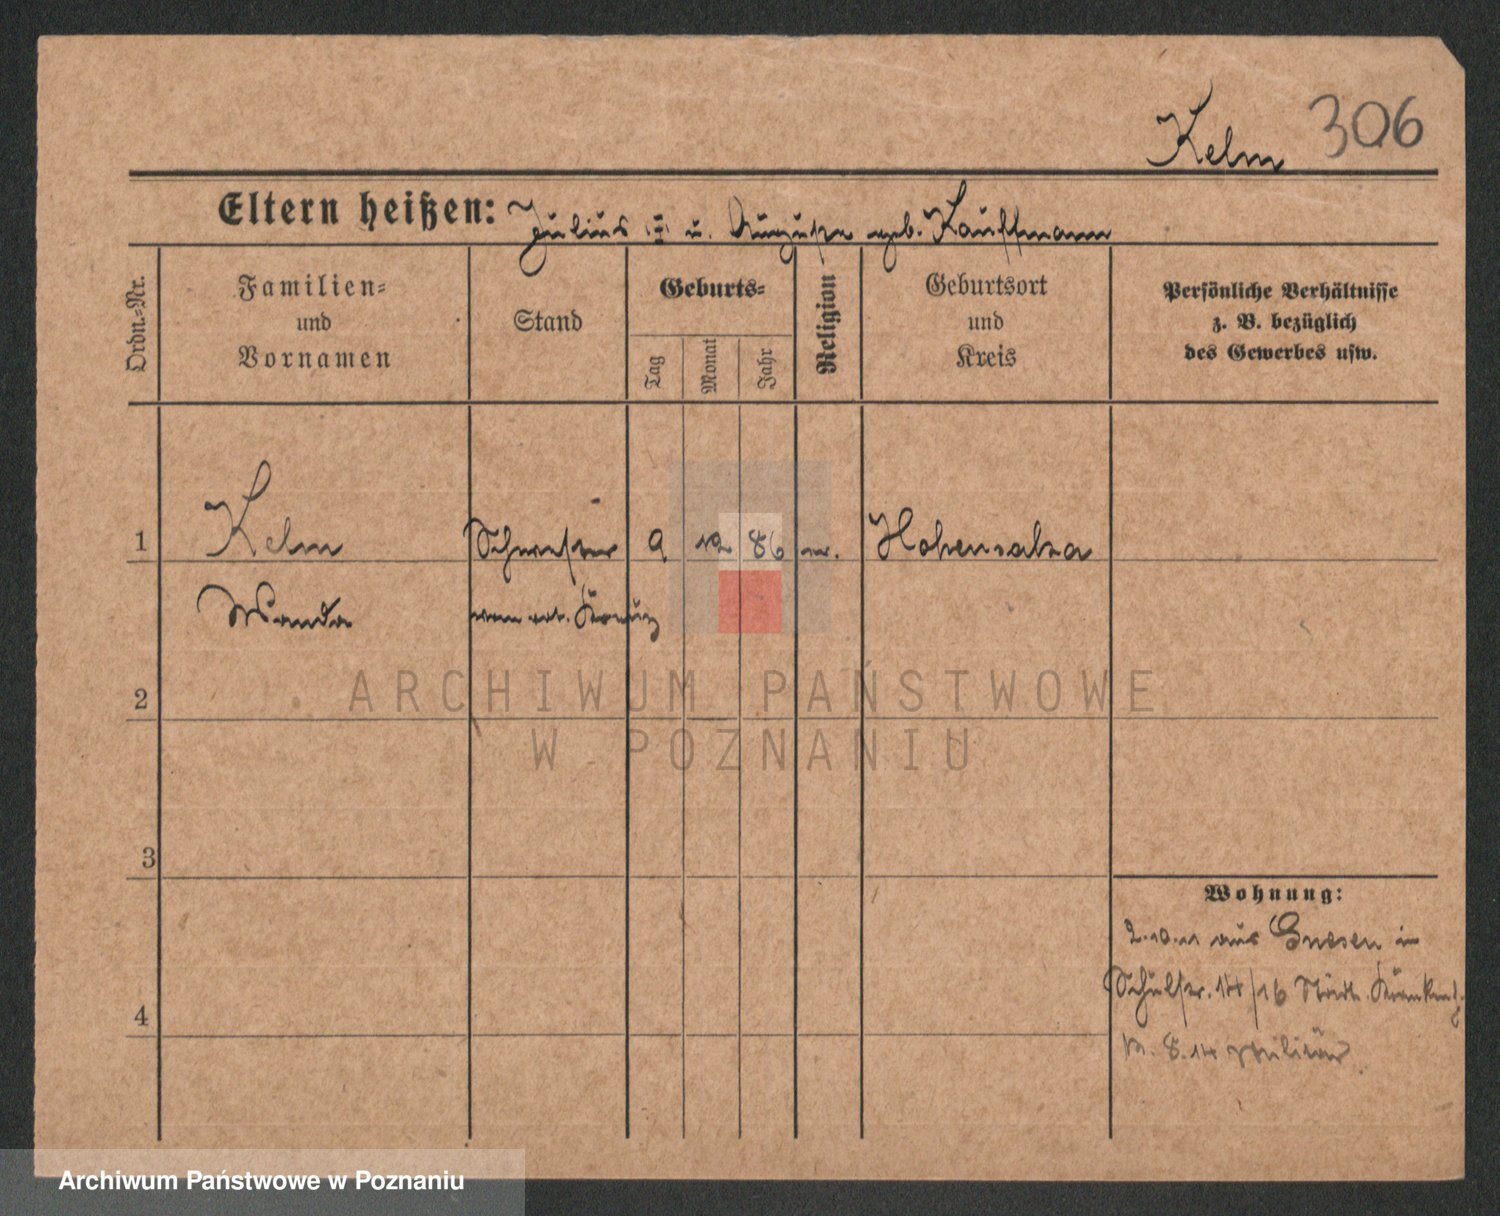 Kelm 306
Eltern heißen: Julius u. Auguste geb. Kauffmann
Ordn.-Nr.
Familien-
und
Vornamen
Stand
Geburts-
Tag
Monat
Jahr
Religion
Geburtsort
und
Kreis
Persönliche Verhältnisse
z. B. bezüglich
des Gewerbes usw.
1 Kelm Schwester 9 12 86 Hohensalza
Wanda vom rot. Kreuz
ARCHIWUM PAŃSTWOWE
W POZNANIU
2
3
4
Wohnung:
2.10.11 aus Gnesen in
Schulstr. 14/16 Städt. Krankenh.
8.14 Militär
Archiwum Państwowe w Poznaniu